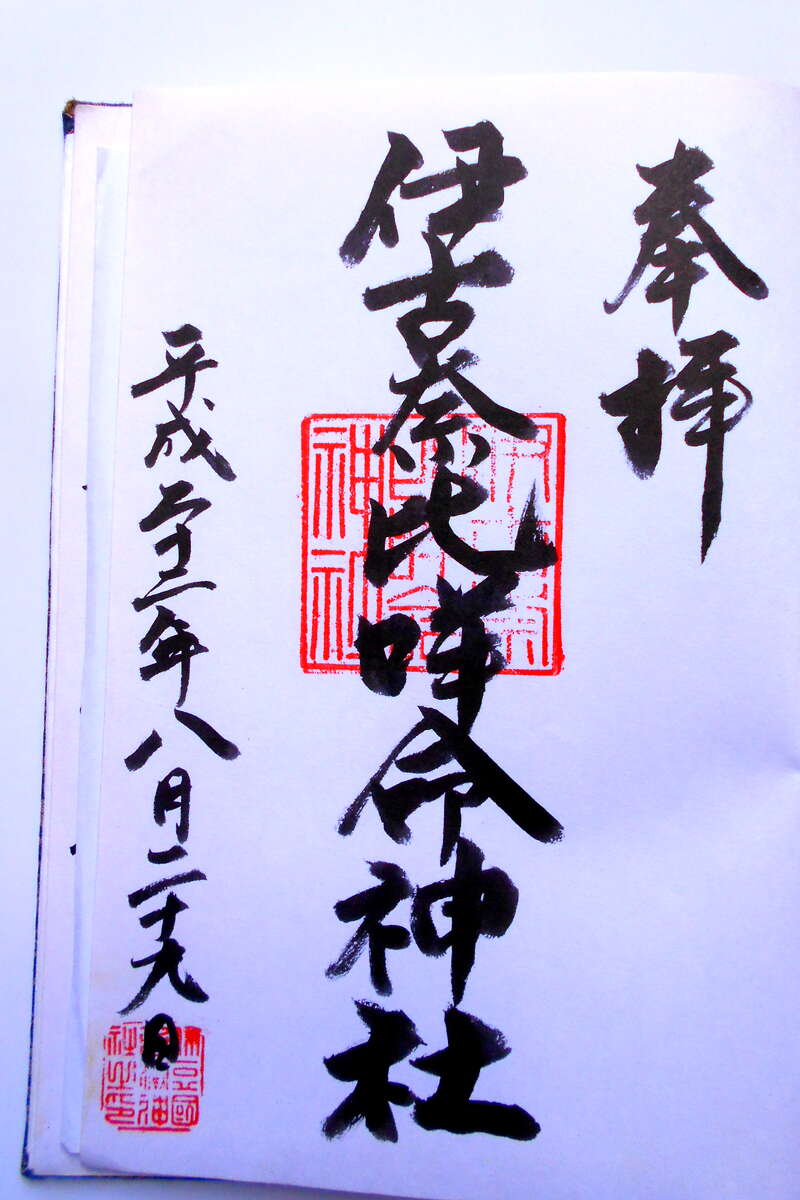 奉拝
伊古奈比咩命神社
平成二十二年八月二十九日